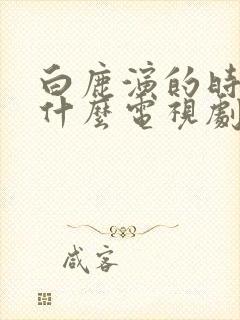 白鹿演的時
什麼電視劇
咸客